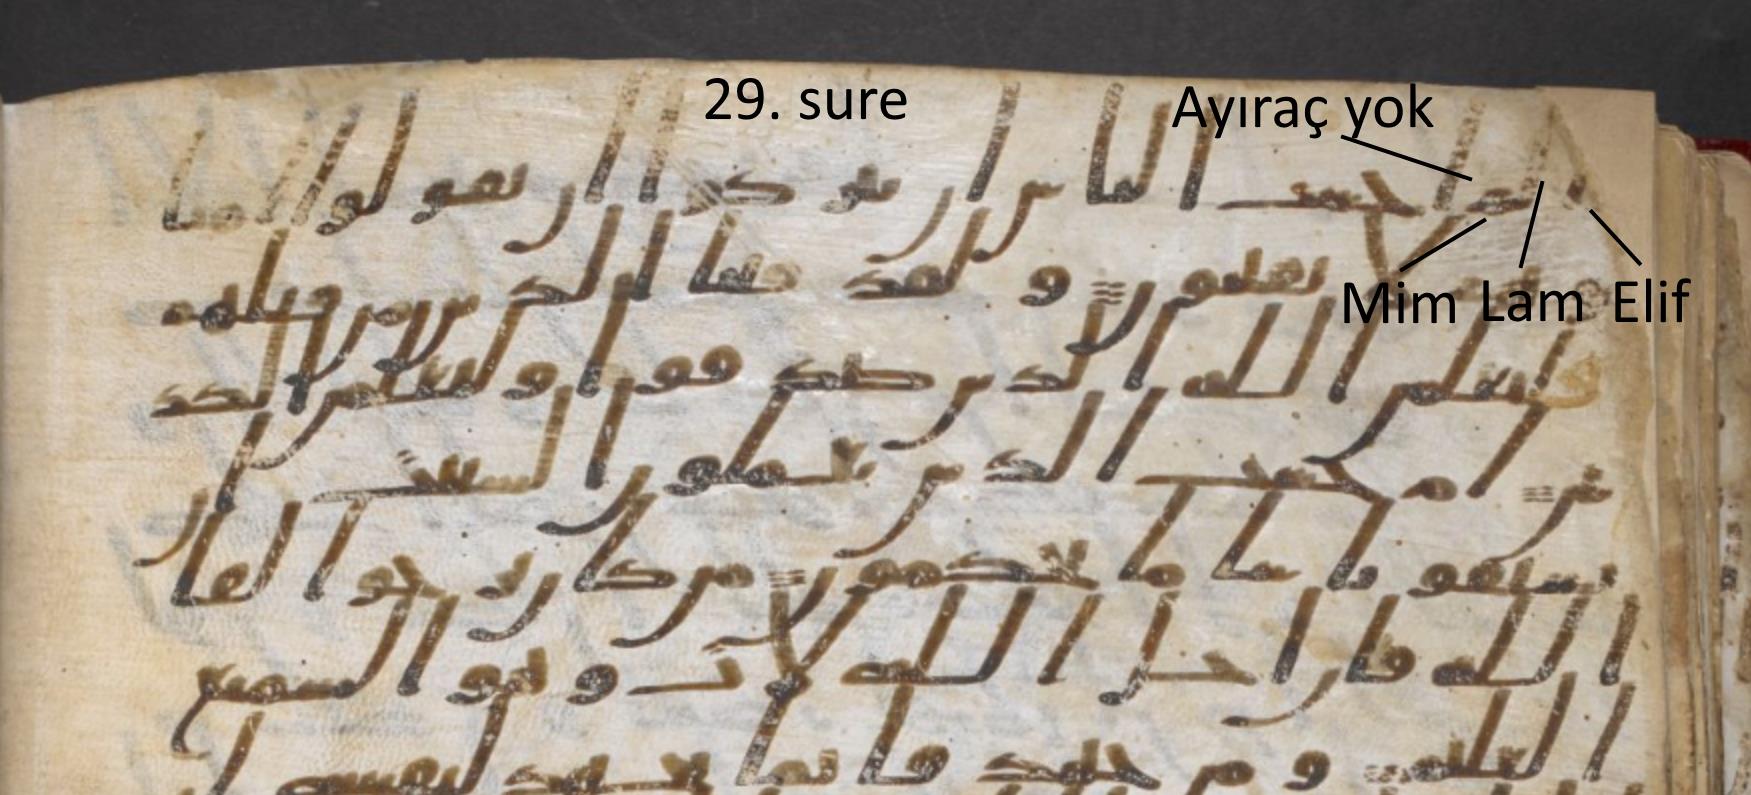 29. sure
Ayıraç yok
الم احسب الناس ان يتركوا ان يقولوا امنا
Mim Lam Elif
وهم لا يفتنون ولقد فتنا الذين من قبلهم
فليعلمن الله الذين صدقوا وليعلمن الكذ
بين ام حسب الذين يعملون السيات ا
ن يسبقونا سا ما يحكمون من كان يرجوا لقا
الله فان اجل الله لات وهو السميع
العليم ومن جهد فانما يجهد لنفسه ا